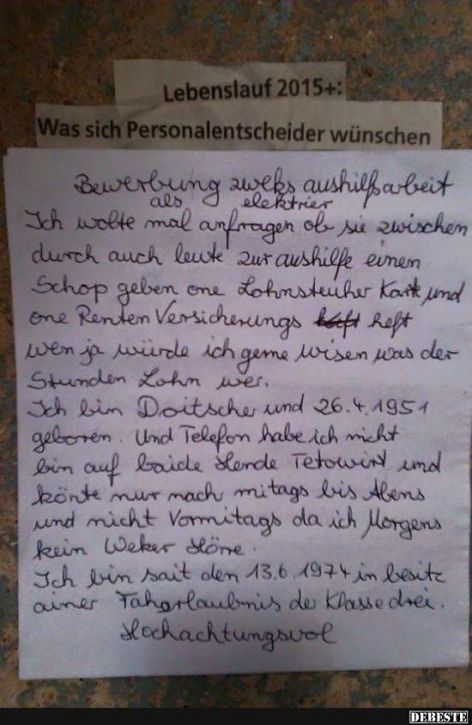 Lebenslauf 2015+:
Was sich Personalentscheider wünschen
Bewerbung zweks aushilfsarbeit
als elektrier
Ich wolte mal anfragen ob sie zwischen
durch auch leute zur aushilfe einen
Schop geben one Lohnsteuher Karte und
one Renten Versicherungs heft
wen ja würde ich gerne wisen was der
Stunden Lohn wer.
Ich bin Doitscher und 26.4.1951
geboren. Und Telefon habe ich nicht
bin auf baide Hende Tetowirt und
könte nur nach mitags bis Abens
und nicht Vormitags da ich Morgens
kein Weker Höre.
Ich bin sait den 13.6.1974 in besitz
ainer Faherlaubnis der Klasse drei.
Hochachtungsvol
DEBESTE